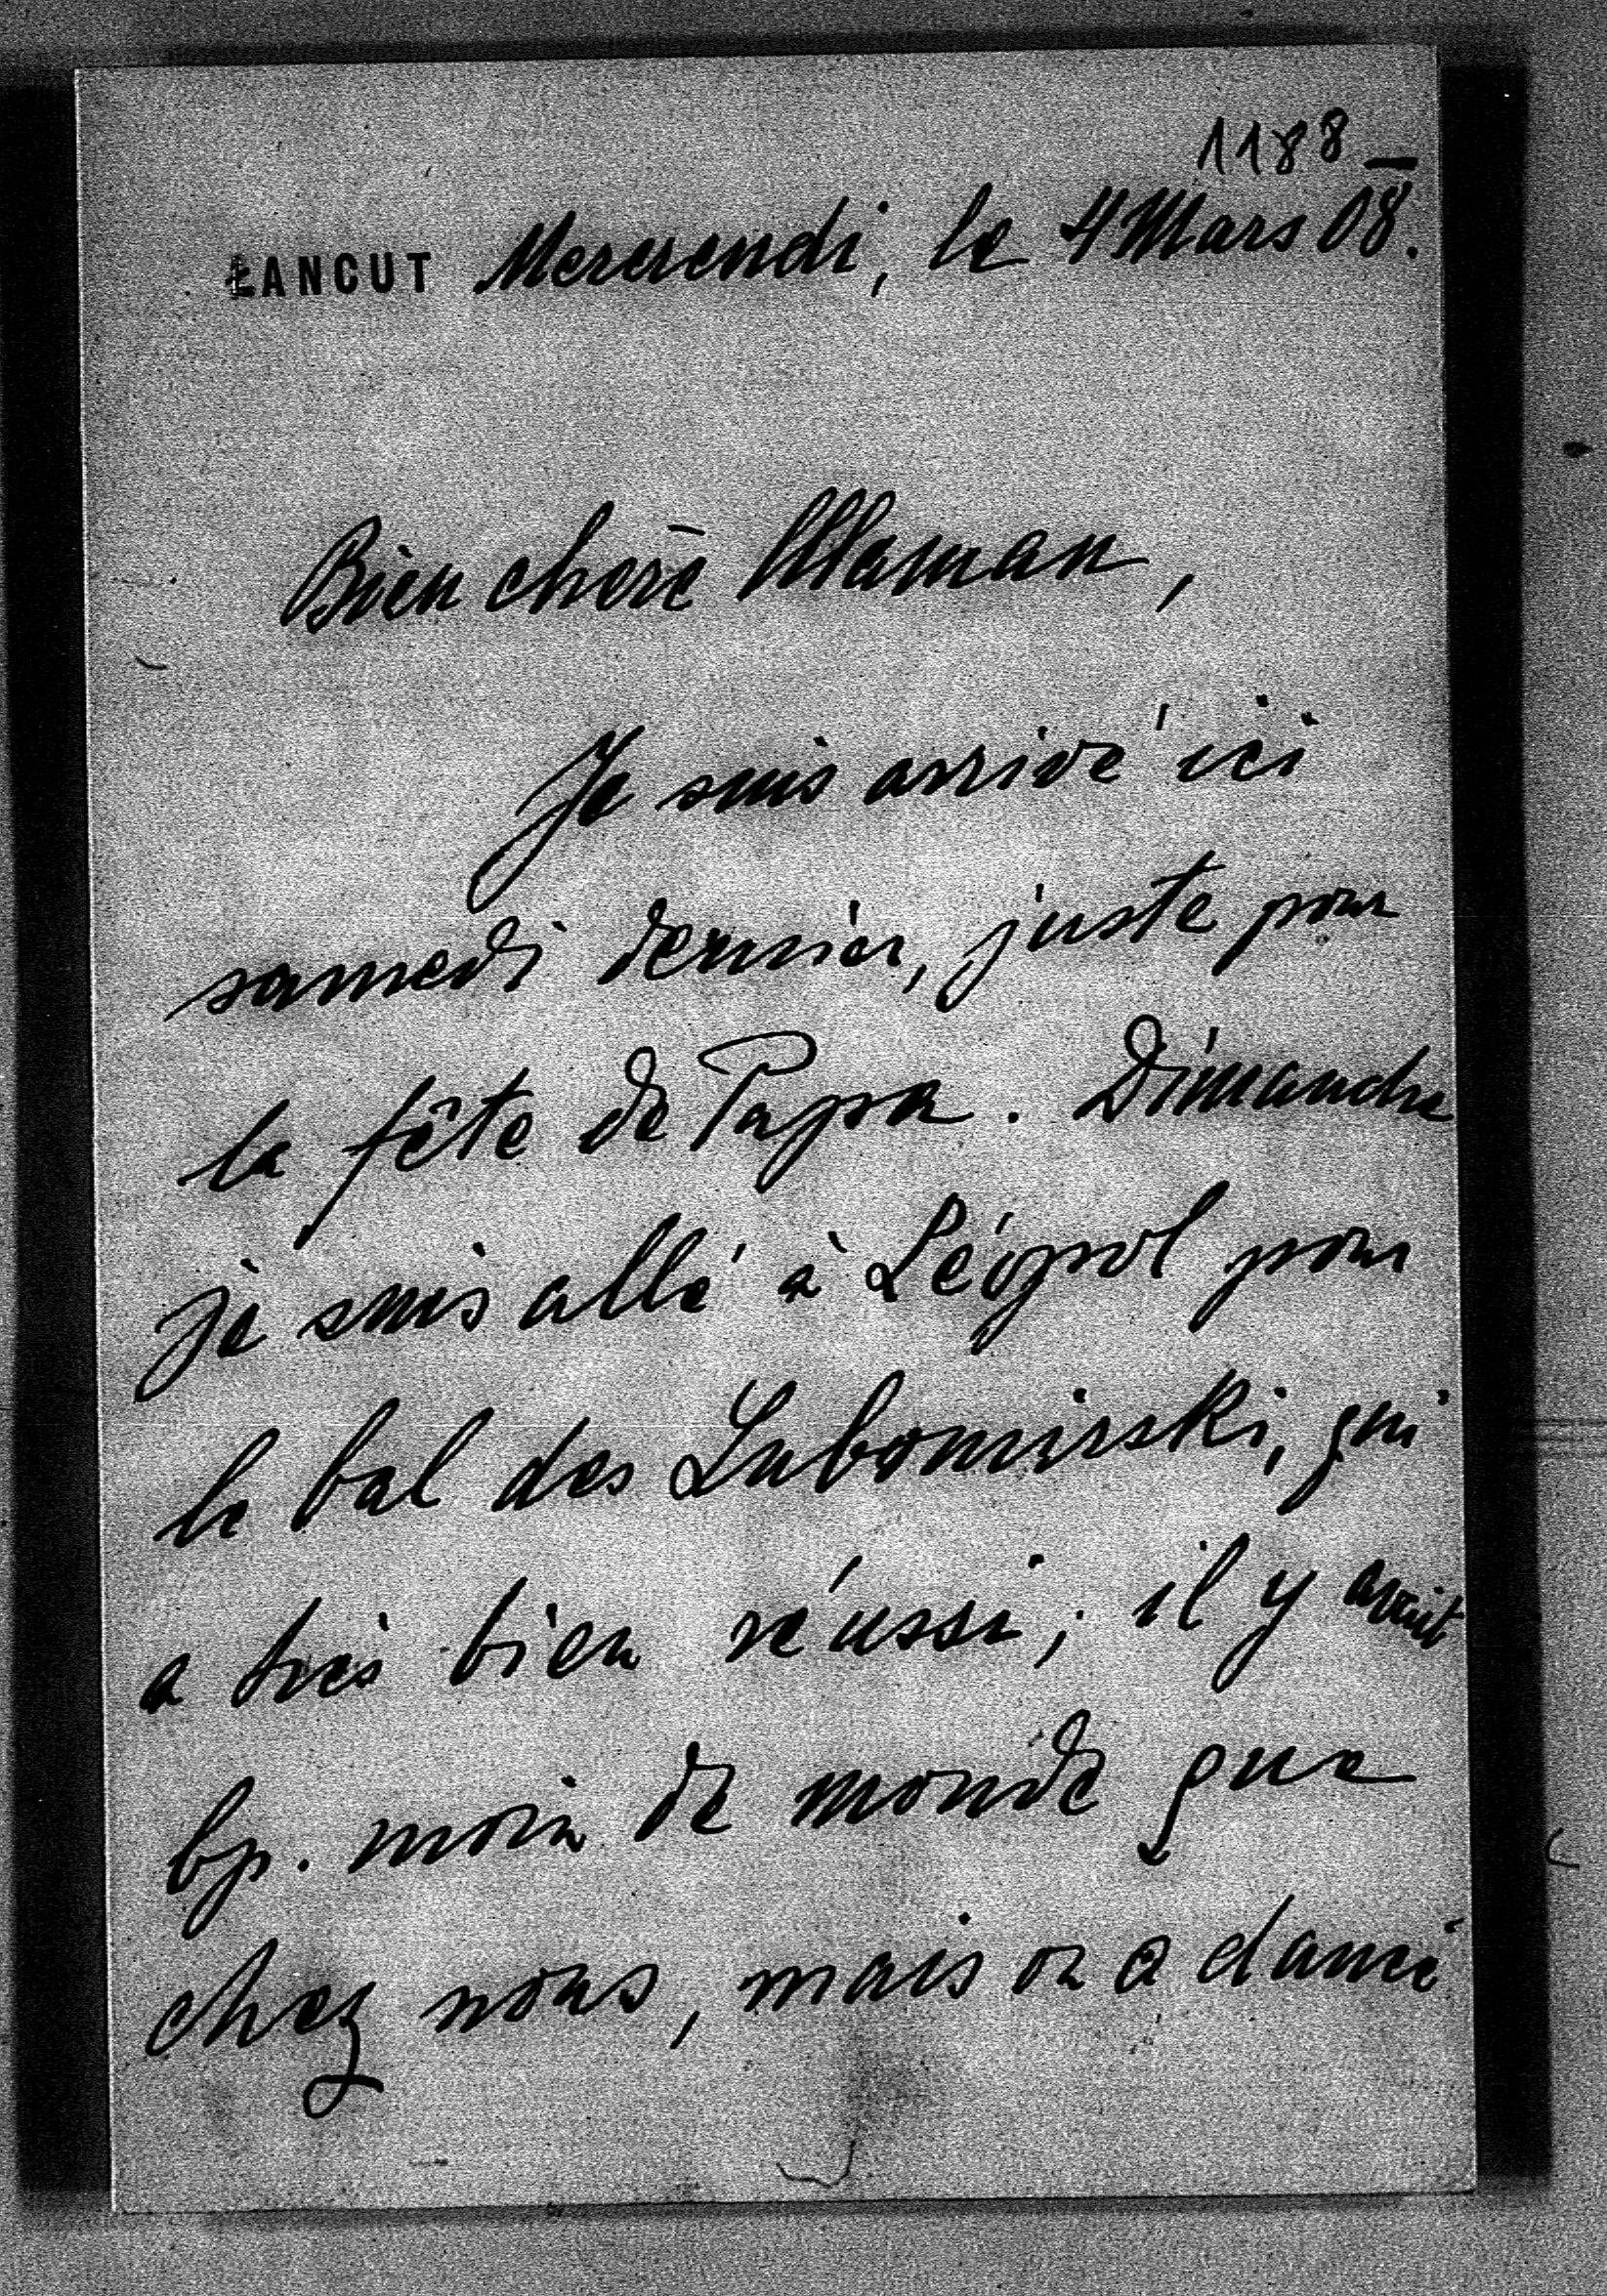 1188 —
ŁANCUT Mercrendi, le 4 Mars 08.
Bien chère Maman,
Je suis arrivé ici
samedi dernier, juste pour
la fête de Papa. Dimanche
je suis allé à Léopol pour
le bal des Lubomirski, qui
a très bien réussi; il y avait
bp. moin de monde que
chez nous, mais on a dancé